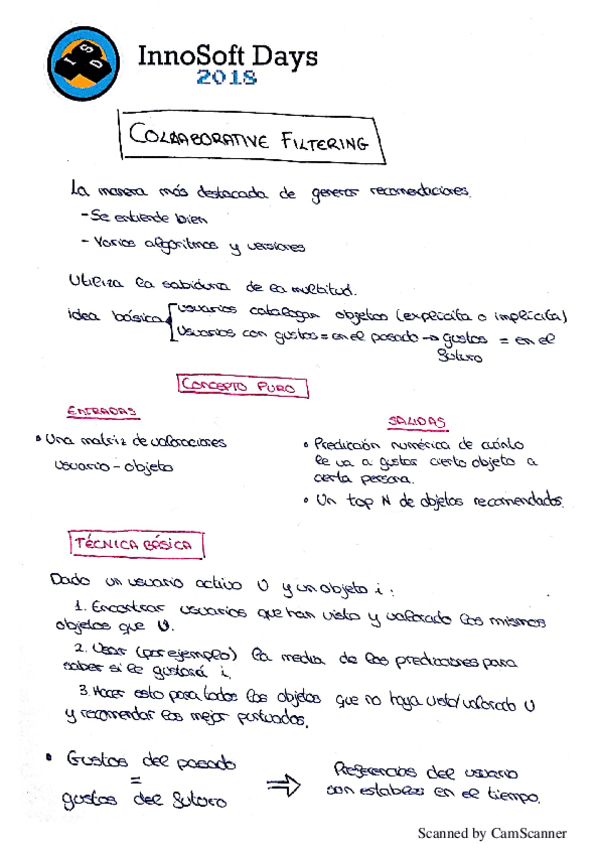 I S D
InnoSoft Days
2018
COLLABORATIVE FILTERING
La manera más destacada de generar recomendaciones.
- Se entiende bien
- Varios algoritmos y versiones
Utiliza la sabiduría de la multitud.
idea básica
usuarios catalogan objetos (explícita o implícita)
Usuarios con gustos = en el pasado → gustos = en el
futuro
CONCEPTO PURO
ENTRADAS
SALIDAS
• Una matriz de valoraciones
usuario - objeto
• Predicción numérica de cuánto
le va a gustar cierto objeto a
cierta persona.
• Un top N de objetos recomendados.
TÉCNICA BÁSICA
Dado un usuario activo U y un objeto i:
1. Encontrar usuarios que han visto y valorado los mismos
objetos que U.
2. Usar (por ejemplo) la media de las predicciones para
saber si le gustará i.
3. Hacer esto para todos los objetos que no haya visto/valorado U
y recomendar los mejor puntuados.
• Gustos del pasado
=
gustos del futuro
⇒
Preferencias del usuario
son estables en el tiempo.
Scanned by CamScanner